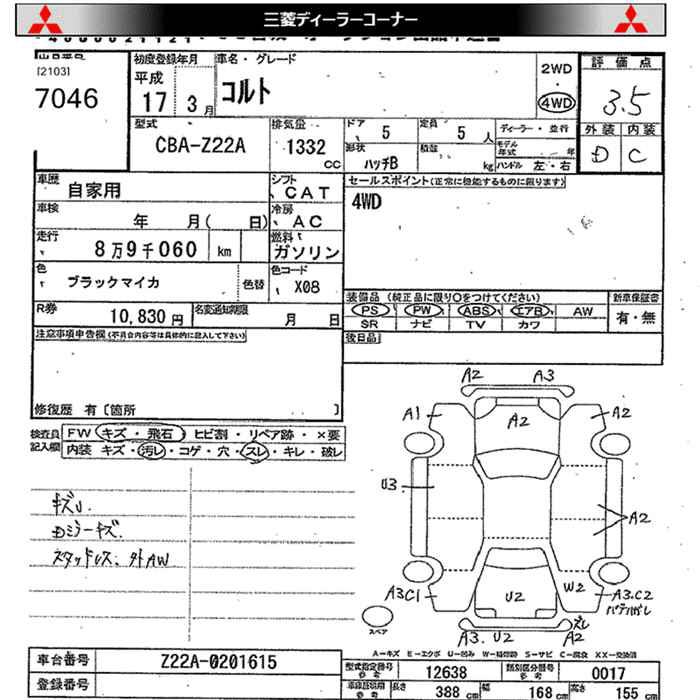 三菱ディーラーコーナー
[2103]
7046
初度登録年月
平成
17 3月
車名・グレード
コルト
2WD
4WD
評価点
3.5
外装 内装
D C
型式
CBA-Z22A
排気量
1332 cc
ドア 5
定員 5 人
形状 ハッチB
積載 kg
ディーラー・並行
モデル年式 年
ハンドル 左・右
車歴 自家用
シフト CAT
車検 年 月( 日)
冷房 AC
走行 8万9千060 km
燃料 ガソリン
色 ブラックマイカ
色替
色コード X08
R券 10,830円
名変通知期限 月 日
セールスポイント(正常に機能するものに限ります)
4WD
装備品(純正品に限り○をつけてください)
PS PW ABS エアB AW
SR ナビ TV カワ
新車保証書
有・無
後日品
注意事項申告欄(不具合内容等は具体的に記入して下さい)
修復歴 有〔箇所 〕
検査員記入欄
FW キズ・飛石・ヒビ割・リペア跡・×要
内装 キズ・汚レ・コゲ・穴・スレ・キレ・破レ
キズU.
Dミラーキズ.
スタッドレス. 外AW
A2 A3
A1 A2 A2
U3 A2
A3C1 U2 W2 A3.C2
ズレ
A3. U2 A2
スペア
A－キズ E－エクボ U－凹み W－補修跡 S－サビ C－腐食 XX－交換済
車台番号 Z22A-0201615
登録番号
型式指定番号 参考 12638
類別区分番号 参考 0017
長さ 388 cm 幅 168 cm 高さ 155 cm